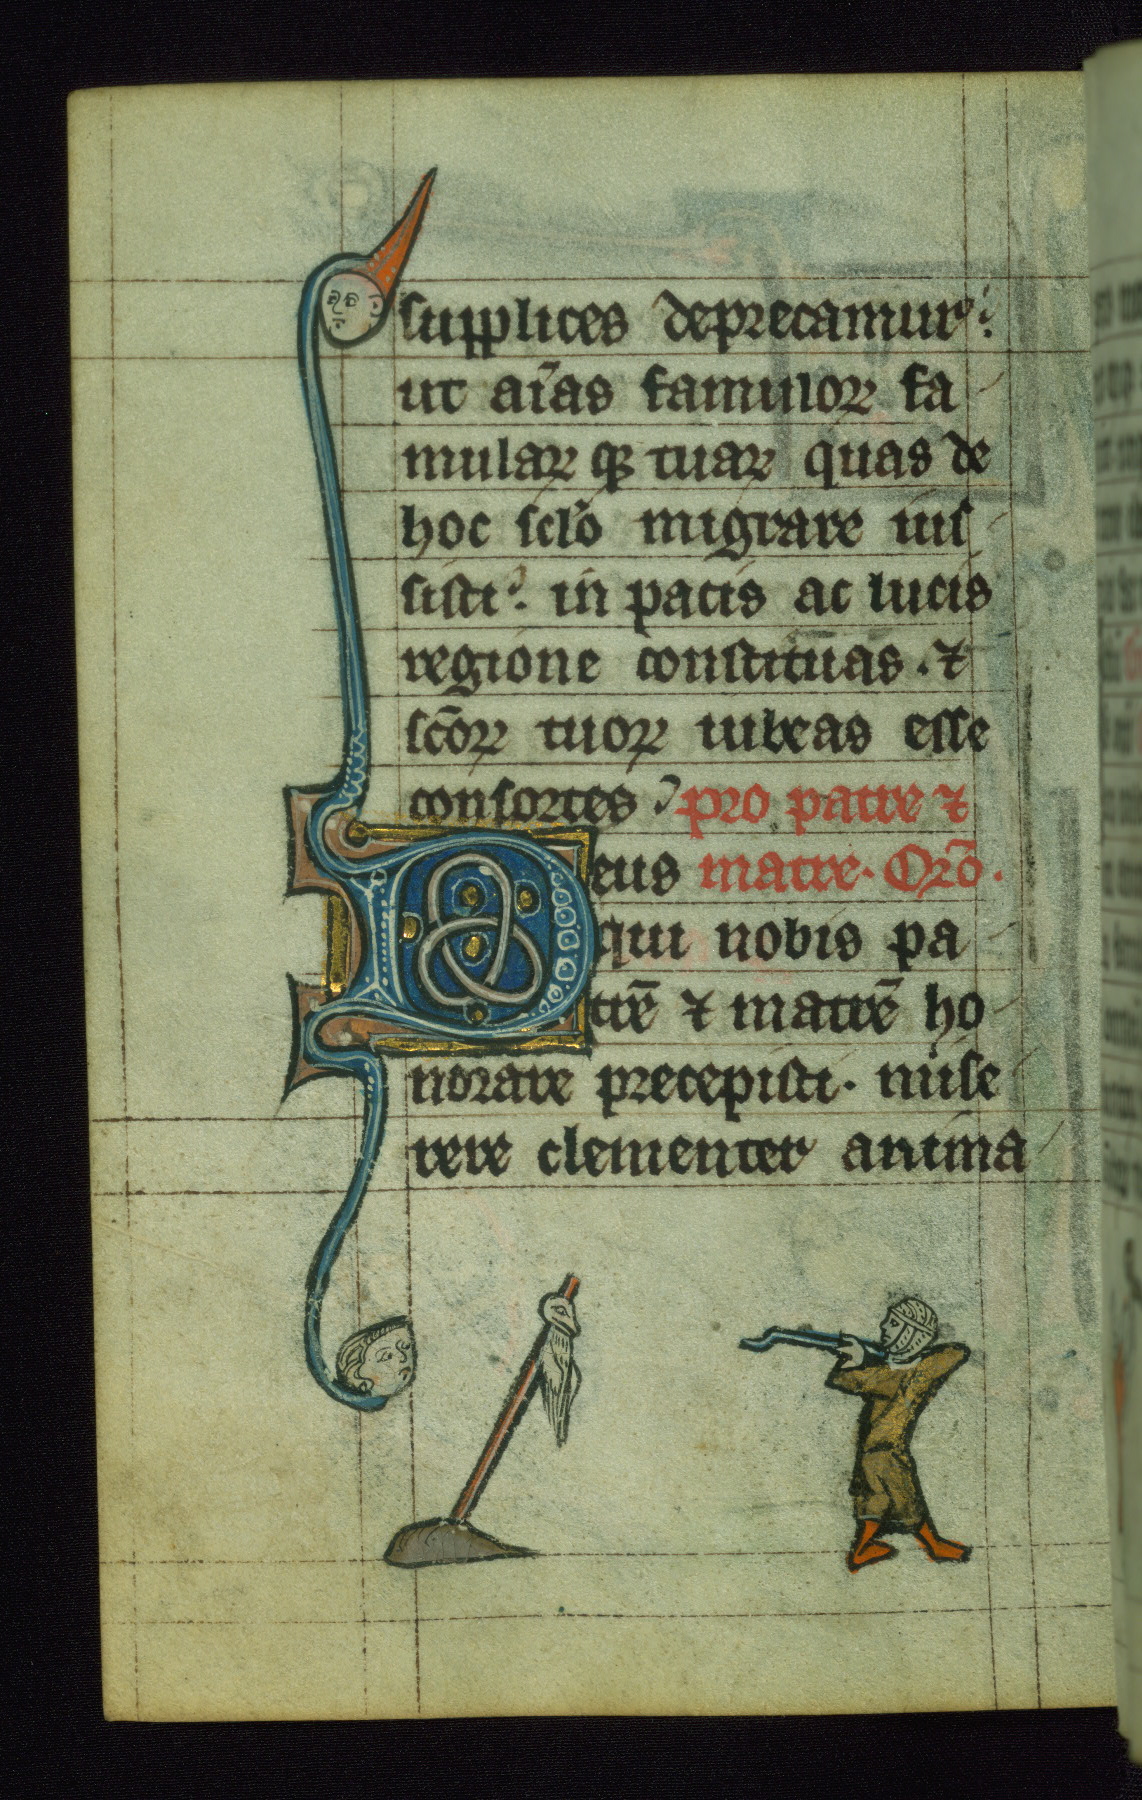 supplices deprecamur:
ut aīas famulor fa
mular qꝫ tuar quas de
hoc sclo migrare ius
sisti. in pacis ac lucis
regione constituas. ⁊
scōꝝ tuoꝝ iubeas esse
consortes pro patre ⁊
Deus matre. Orō.
qui nobis pa
trē ⁊ matrē ho
norare precepisti. mise
rere clementer anima